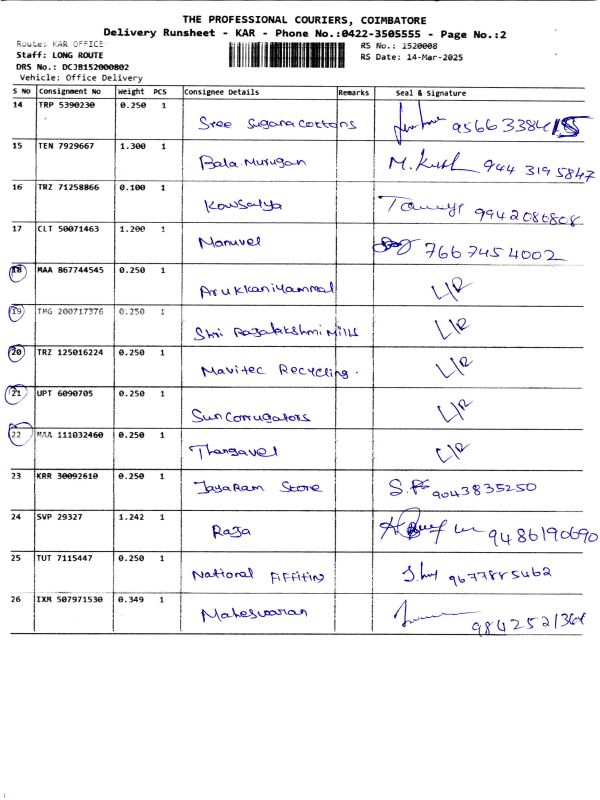 THE PROFESSIONAL COURIERS, COIMBATORE
Delivery Runsheet - KAR - Phone No.:0422-3505555 - Page No.:2
Route: KAR OFFICE RS No.: 1520008
Staff: LONG ROUTE RS Date: 14-Mar-2025
DRS No.: DCJB152000802
Vehicle: Office Delivery
S No Consignment No Weight PCS Consignee Details Remarks Seal & Signature
14 TRP 5390230 0.250 1 Sree Suganacottons
15 TEN 7929667 1.300 1 Bala Murugan 944 319 5847
16 TRZ 71258866 0.100 1 Kowsalya 9942080808
17 CLT 50071463 1.200 1 Manuvel 7667454002
18 MAA 867744545 0.250 1 Arukkaniyammal L/R
19 TMG 200717376 0.250 1 Shri Rajalakshmi Mills L/R
20 TRZ 125016224 0.250 1 Mavitec Recycling. L/R
21 UPT 6090705 0.250 1 Sun Corrugators L/R
22 MAA 111032460 0.250 1 Thangavel L/R
23 KRR 30092610 0.250 1 Jayaram Store 9043835250
24 SVP 29327 1.242 1 Raja 9486190690
25 TUT 7115447 0.250 1 National 9677885462
26 IXM 507971530 0.349 1 Maheswaran 9842521364